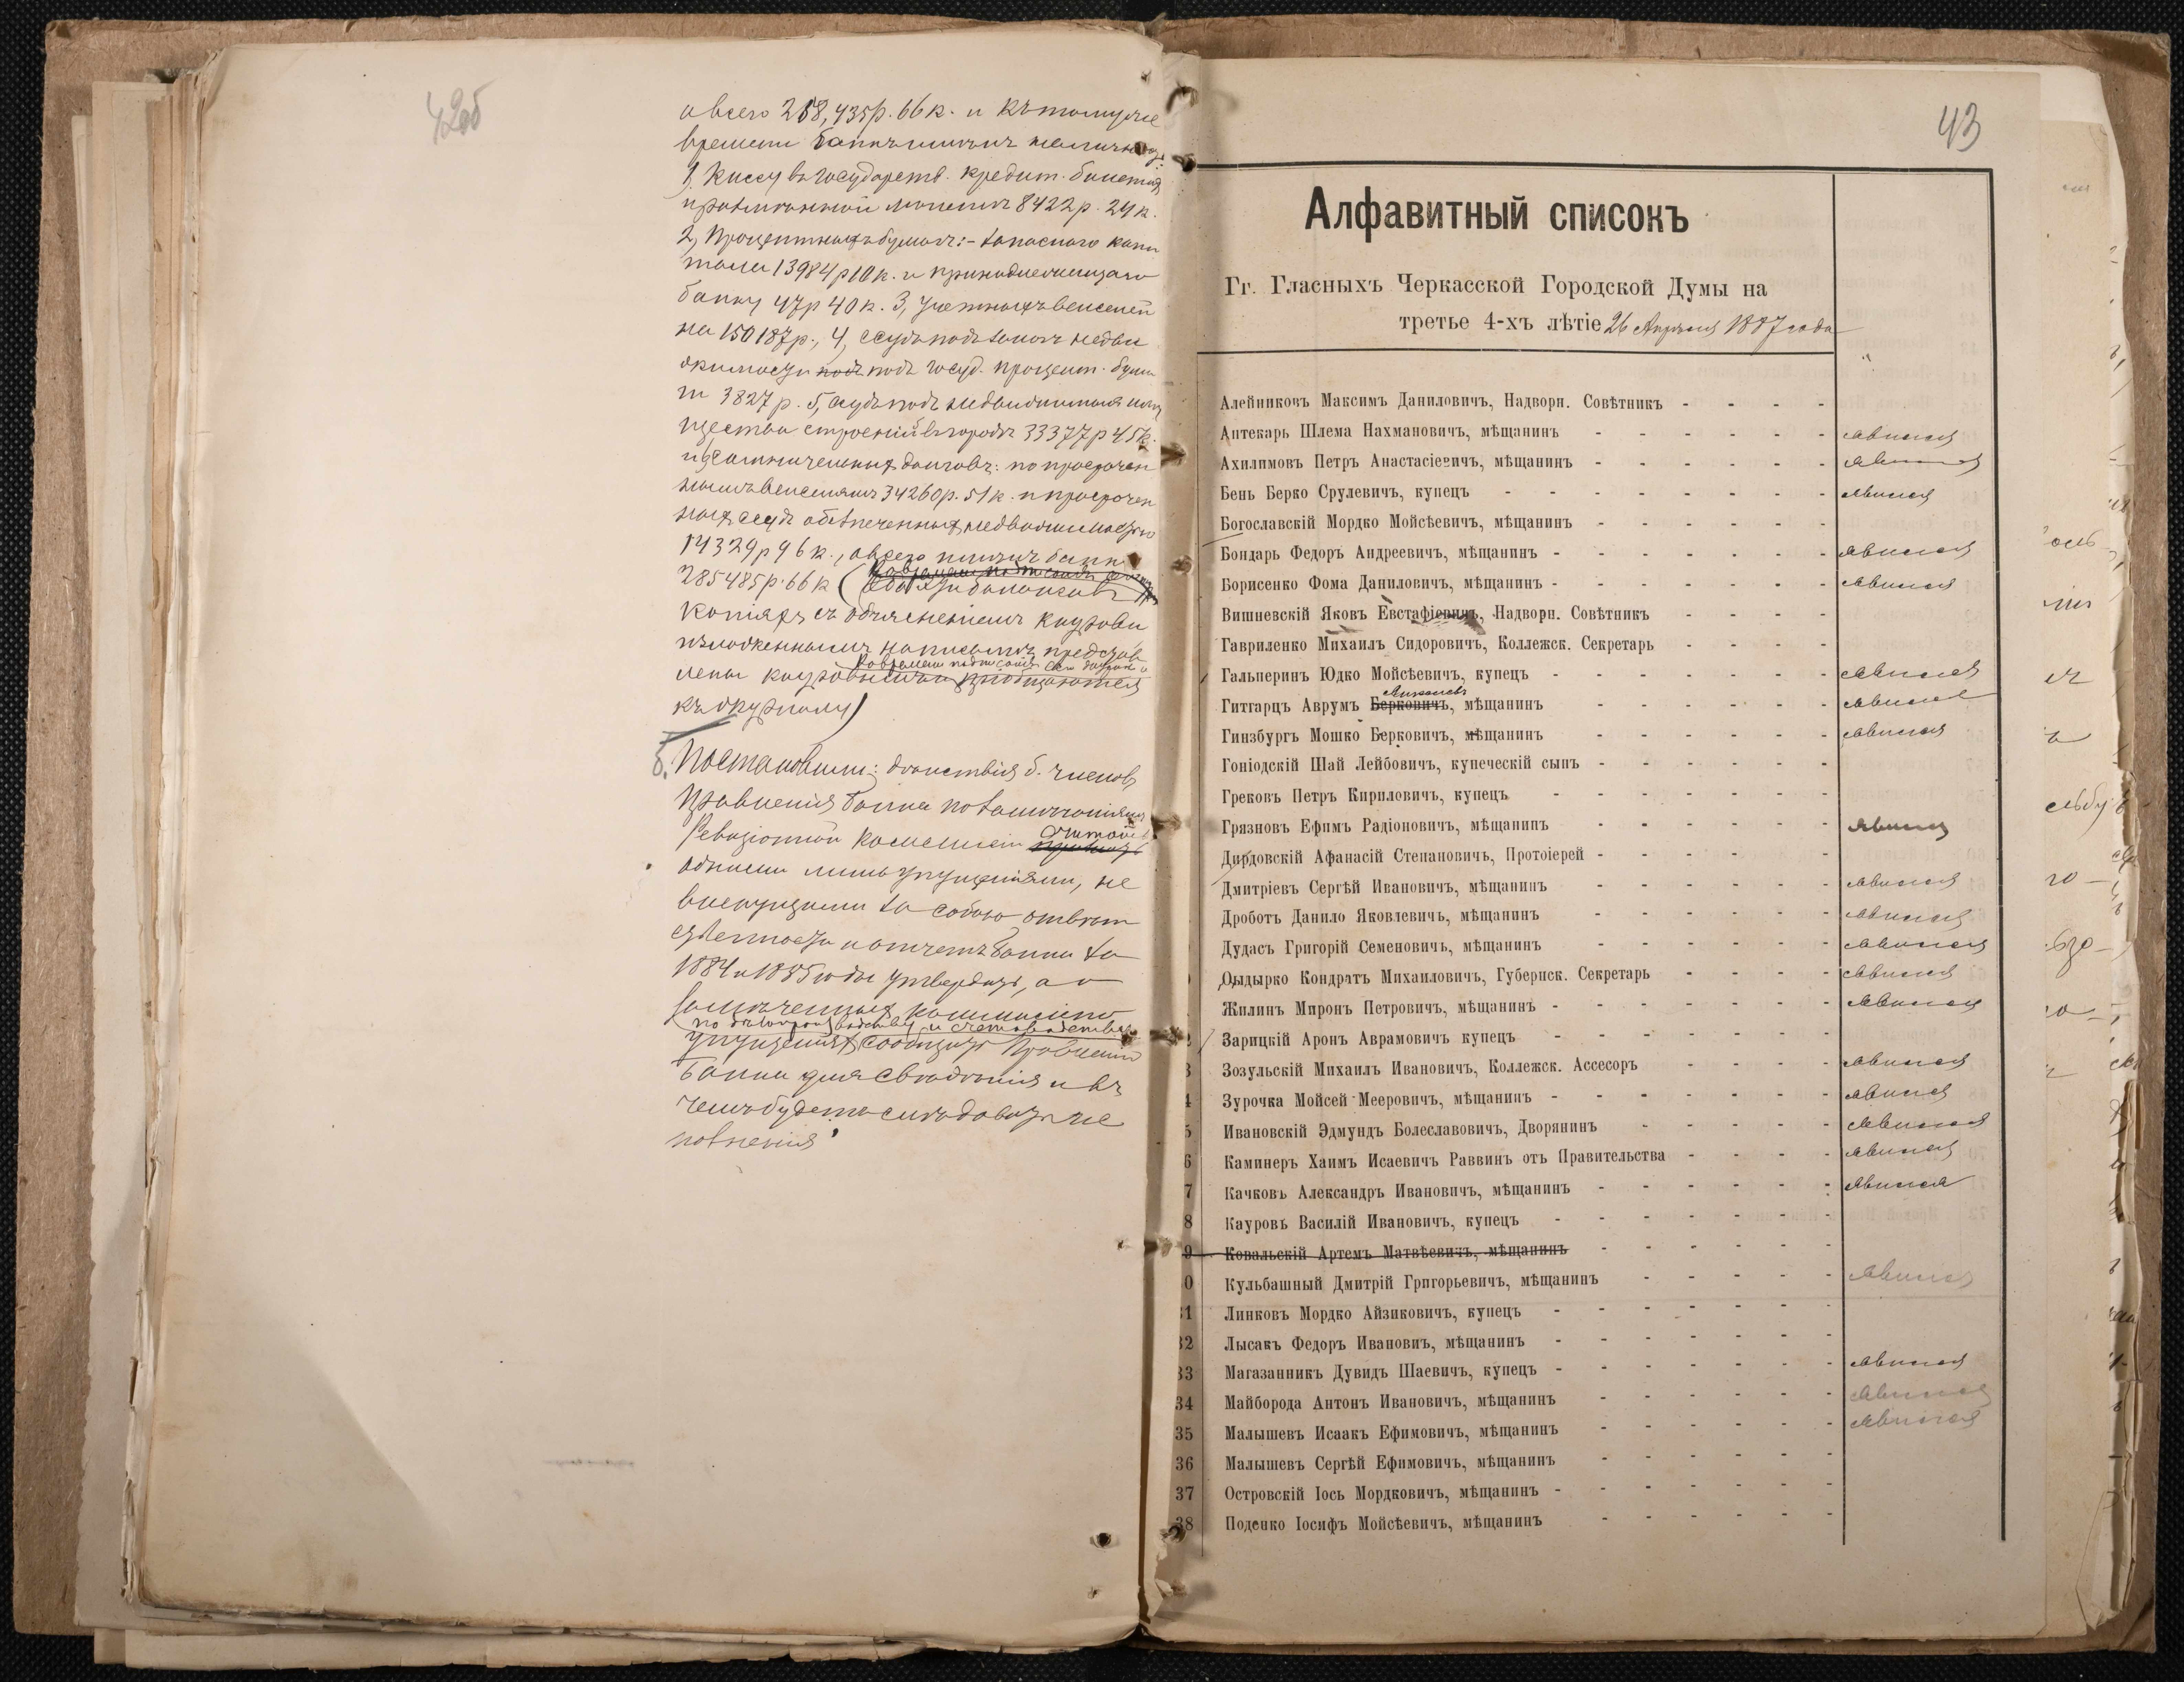 42об
а всего 268,435р. 66к. и къ тому же
времени банкъ имѣлъ наличн
1, Кассу въ государств. кредит. билетах
и размѣнной монетѣ 8422р. 24к.
2, Процентныхъ бумагъ:- запаснаго капи
тала 13984р 10к. и принадлежащаго
банку 47р 40к. 3, учетныхъ векселей
на 150187р., 4, ссудъ подъ залогъ недви
жимости подъ подъ госуд. процент. бума
ги 3827р. 5, ссудъ подъ недвижимыя иму
щества строеній въ городѣ 33377р 45к.
и сомнительныхъ долговъ: по просрочен
нымъ векселямъ 34260р. 51к. и просрочен
ныхъ ссудъ обезпеченныхъ недвижимостью
14329р 96к., а всего имѣлъ банкъ
285485р. 66к (
копіяхъ съ объясненіемъ
изложеннымъ
лены
къ журналу)
Постановили: дѣйствія б. членовъ
Правленія банка по замѣчаніямъ
Ревизіонной Коммисіи считать
одними лишь упущеніями, не
влекущими за собою ответ
ственности и отчетъ банка за
1884 и 1885 годы утвердить, а о
замѣченныхъ коммисіею
по дѣлопроизводству и счетоводству
упущеніяхъ сообщить Правленію
банка для свѣдѣнія и въ
чемъ будетъ слѣдовать ис
полненія
43
Алфавитный списокъ
Гг. Гласныхъ Черкасской Городской Думы на
третье 4-хъ лѣтіе 26 Апрѣля 1887 года
Алейниковъ Максимъ Даниловичъ, Надворн. Совѣтникъ - - - -
Аптекарь Шлема Нахмановичъ, мѣщанинъ - - - - - - явился
Ахилимовъ Петръ Анастасіевичъ, мѣщанинъ - - - - - - явился
Бень Берко Срулевичъ, купецъ - - - - - - - - явился
Богославскій Мордко Мойсѣевичъ, мѣщанинъ - - - - - -
Бондарь Федоръ Андреевичъ, мѣщанинъ - - - - - - - явился
Борисенко Фома Даниловичъ, мѣщанинъ - - - - - - - явился
Вишневскій Яковъ Евстафіевичъ, Надворн. Совѣтникъ - - - -
Гавриленко Михаилъ Сидоровичъ, Коллежск. Секретарь - - - -
Гальперинъ Юдко Мойсѣевичъ, купецъ - - - - - - - явился
Гитгарцъ Аврумъ Берковичъ, мѣщанинъ - - - - - - явился
Гинзбургъ Мошко Берковичъ, мѣщанинъ - - - - - - явился
Гоніодскій Шай Лейбовичъ, купеческій сынъ - - - - - -
Грековъ Петръ Кириловичъ, купецъ - - - - - - -
Грязновъ Ефимъ Радіоновичъ, мѣщанинъ - - - - - - явился
Дирдовскій Афанасій Степановичъ, Протоіерей - - - - - -
Дмитріевъ Сергѣй Ивановичъ, мѣщанинъ - - - - - - явился
Дроботъ Данило Яковлевичъ, мѣщанинъ - - - - - - явился
Дудасъ Григорій Семеновичъ, мѣщанинъ - - - - - - явился
Дыдырко Кондратъ Михаиловичъ, Губернск. Секретарь - - - - явился
Жилинъ Миронъ Петровичъ, мѣщанинъ - - - - - - - явился
Зарицкій Аронъ Аврамовичъ купецъ - - - - - - -
3 Зозульскій Михаилъ Ивановичъ, Коллежск. Ассесоръ - - - - явился
4 Зурочка Мойсей Мееровичъ, мѣщанинъ - - - - - - - явился
5 Ивановскій Эдмундъ Болеславовичъ, Дворянинъ - - - - - явился
6 Каминеръ Хаимъ Исаевичъ Раввинъ отъ Правительства - - - - явился
7 Качковъ Александръ Ивановичъ, мѣщанинъ - - - - - - явился
8 Кауровъ Василій Ивановичъ, купецъ - - - - - - -
9 Ковальскій Артемъ Матвѣевичъ, мѣщанинъ - - - - - -
0 Кульбашный Дмитрій Григорьевичъ, мѣщанинъ - - - - - явился
31 Линковъ Мордко Айзиковичъ, купецъ - - - - - - -
32 Лысакъ Федоръ Ивановичъ, мѣщанинъ - - - - - - -
33 Магазанникъ Дувидъ Шаевичъ, купецъ - - - - - - - явился
34 Майборода Антонъ Ивановичъ, мѣщанинъ - - - - - - явился
35 Малышевъ Исаакъ Ефимовичъ, мѣщанинъ - - - - - - явился
36 Малышевъ Сергѣй Ефимовичъ, мѣщанинъ - - - - - -
37 Островскій Іось Мордковичъ, мѣщанинъ - - - - - - -
38 Поденко Іосифъ Мойсѣевичъ, мѣщанинъ - - - - - -